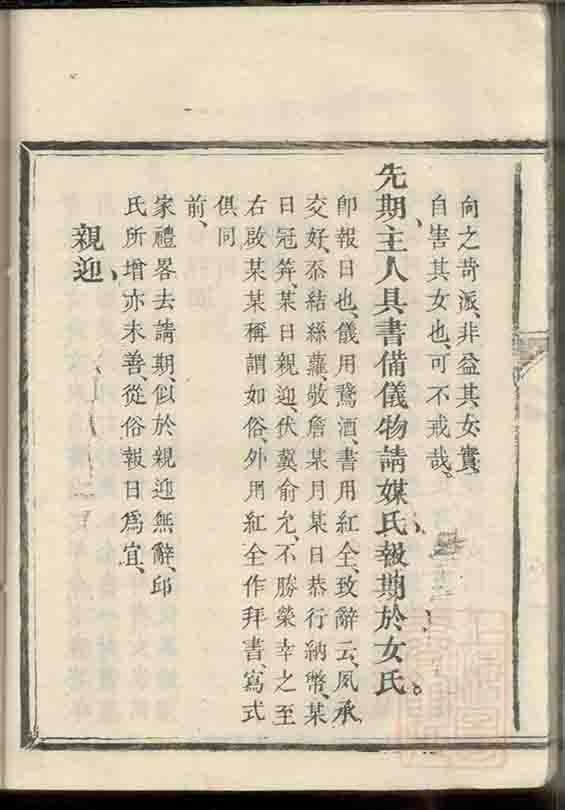 向之苛派、非益其女、實
自害其女也、可不戒哉、
先期、主人具書備儀物、請媒氏報期於女氏。
卽報日也、儀用鵞酒、書用紅全、致辭云、夙承
交好、忝結絲蘿、敬詹某月某日恭行納幣、某
日冠笄、某日親迎、伏冀俞允、不勝榮幸之至
右啟某某稱謂如俗、外用紅全作拜書、寫式
俱同
前、
家禮畧去請期、似於親迎無辭、邱
氏所增亦未善、從俗報日爲宜、
親迎、